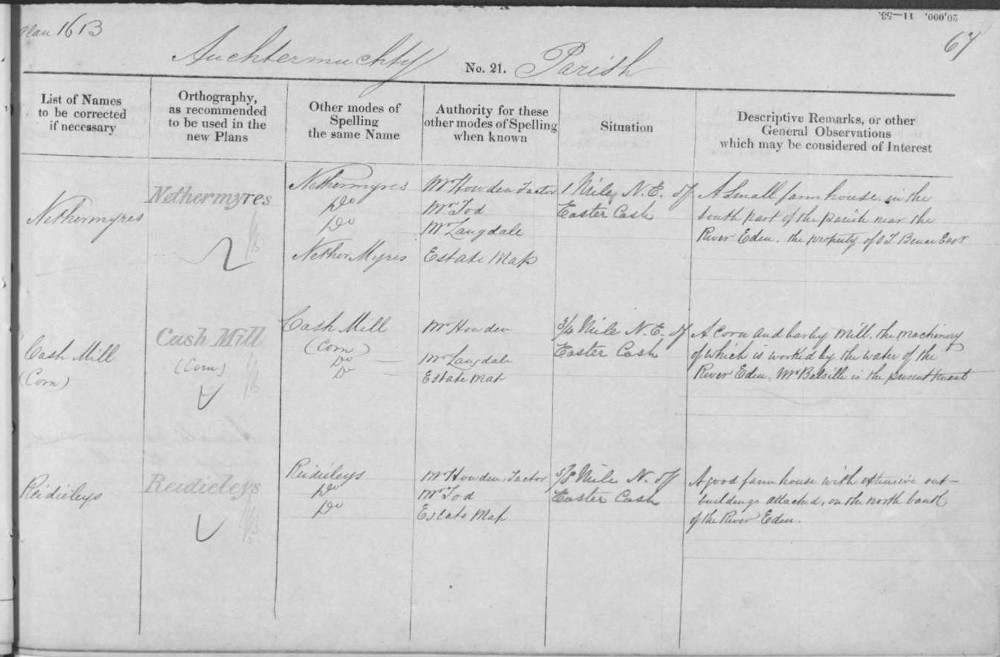 20,000. 11—53.
Plan 161B
67
Auchtermuchty No. 21. Parish
List of Names
to be corrected
if necessary
Orthography,
as recommended
to be used in the
new Plans
Other modes of
Spelling
the same Name
Authority for these
other modes of Spelling
when known
Situation
Descriptive Remarks, or other
General Observations
which may be considered of Interest
Nethermyres
Nethermyres
Nethermyres
Do
Do
Nether Myres
Mr Howden Factor
Mr Tod
Mr Langdale
Estate Map
1 Mile N.E. of
Easter Cash
A Small farm house in the
South part of the parish near the
River Eden. the property of O T Bruce Esqr.
Cash Mill
(Corn)
Cash Mill
(Corn)
Cash Mill
(Corn)
Do
Do
Mr Howden
Mr Langdale
Estate Map
3/4 Mile N.E. of
Easter Cash
A Corn and barley Mill, the machinery
of which is worked by the water of the
River Eden. Mr is the present tenant
Reidieleys
Reidieleys
Reidieleys
Do
Do
Mr Howden Factor
Mr Tod
Estate Map
5/8 Mile N. of
Easter Cash
A good farm house with extensive out-
buildings attached, on the north bank
of the River Eden.